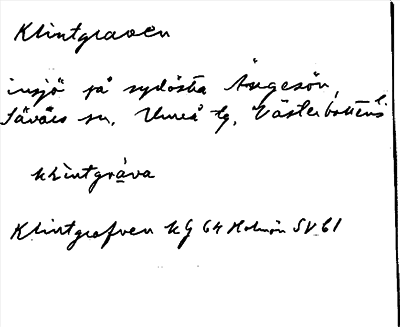 Klintgraven
insjö på sydöstra Ängesön,
Sävars sn, Umeå tg, Västerbottens l.
klìntgrȧva
Klintgrafven KG 64 Holmön SV 61